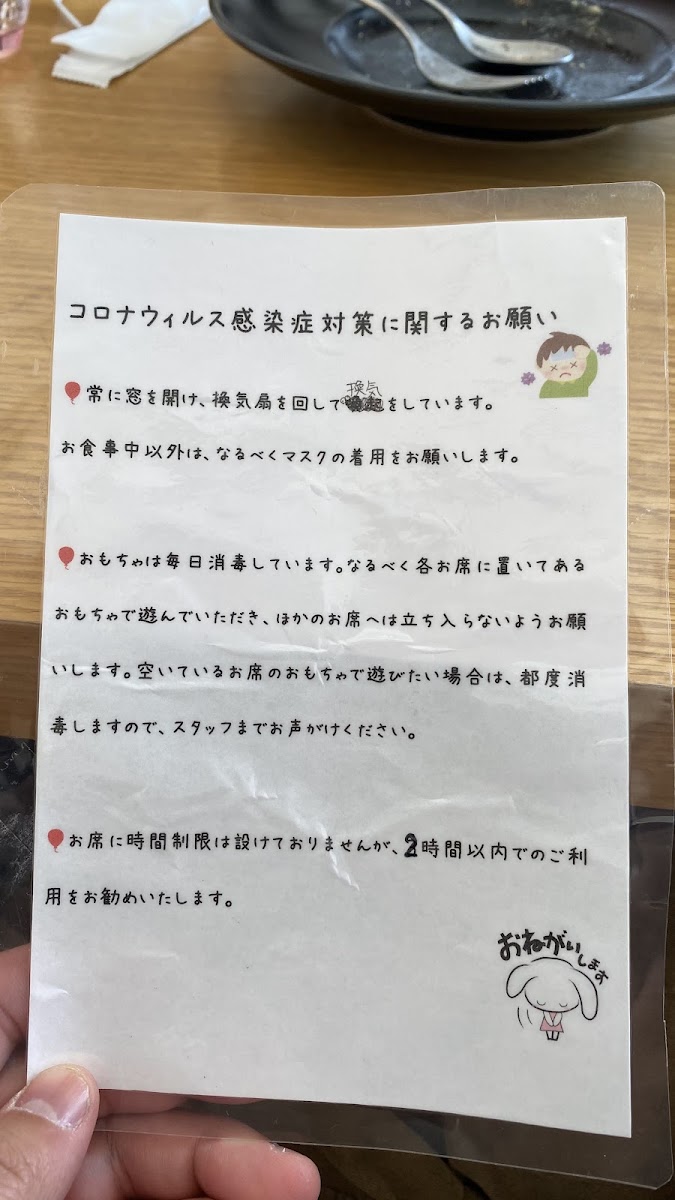 コロナウィルス感染症対策に関するお願い
常に窓を開け、換気扇を回して換気をしています。
お食事中以外は、なるべくマスクの着用をお願いします。
おもちゃは毎日消毒しています。なるべく各お席に置いてある
おもちゃで遊んでいただき、ほかのお席へは立ち入らないようお願
いします。空いているお席のおもちゃで遊びたい場合は、都度消
毒しますので、スタッフまでお声がけください。
お席に時間制限は設けておりませんが、2時間以内でのご利
用をお勧めいたします。
おねがいします